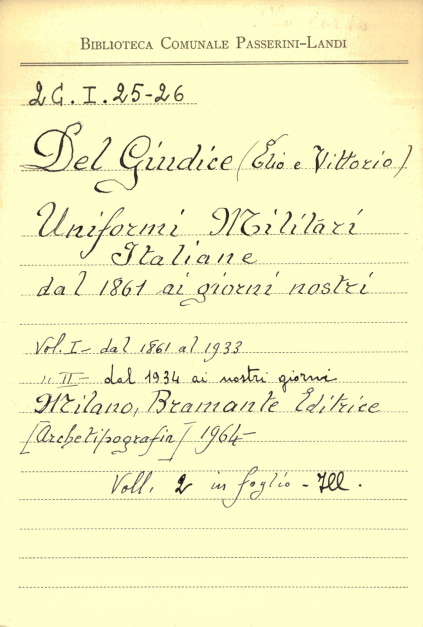 BIBLIOTECA COMUNALE PASSERINI-LANDI
2G.I.25-26
Del Giudice (Elio e Vittorio)
Uniformi Militari
Italiane
dal 1861 ai giorni nostri
Vol. I - dal 1861 al 1933
" II - dal 1934 ai nostri giorni
Milano, Bramante Editrice
[Archetipografia] 1964-
Voll. 2 in foglio - Ill.